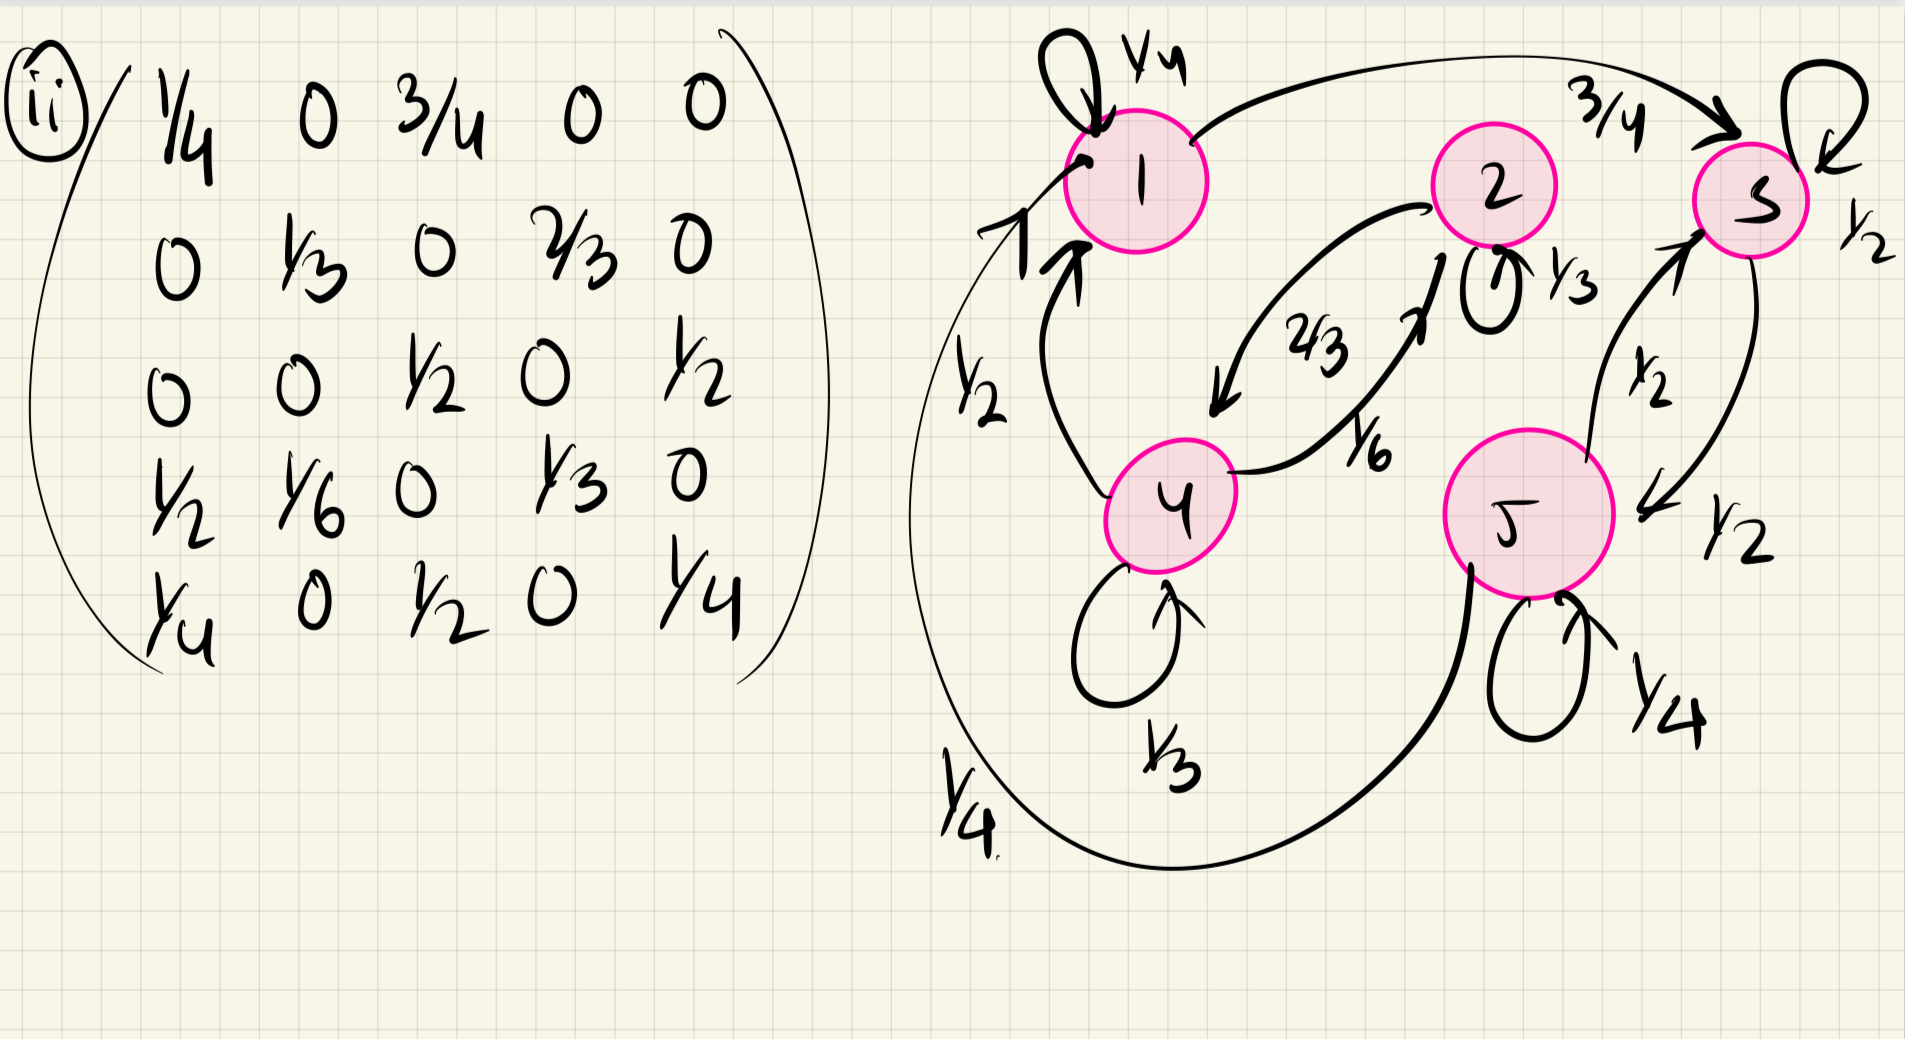 ii
1/4 0 3/4 0 0
0 1/3 0 2/3 0
0 0 1/2 0 1/2
1/2 1/6 0 1/3 0
1/4 0 1/2 0 1/4
1/4
3/4
1
2
3
1/2
1/3
2/3
1/2
1/2
1/6
4
5
1/2
1/3
1/4
1/4